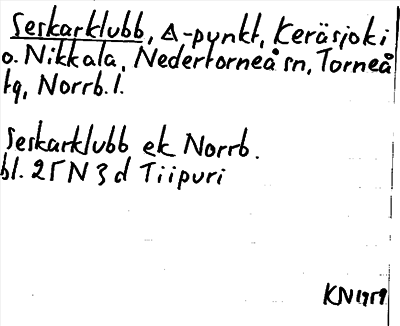 Seskarklubb, △-punkt, Keräsjoki
o. Nikkala, Nedertorneå sn, Torneå
tg, Norrb. l.
Seskarklubb ek Norrb.
bl. 25 N 3 d Tiipuri
KN 1959